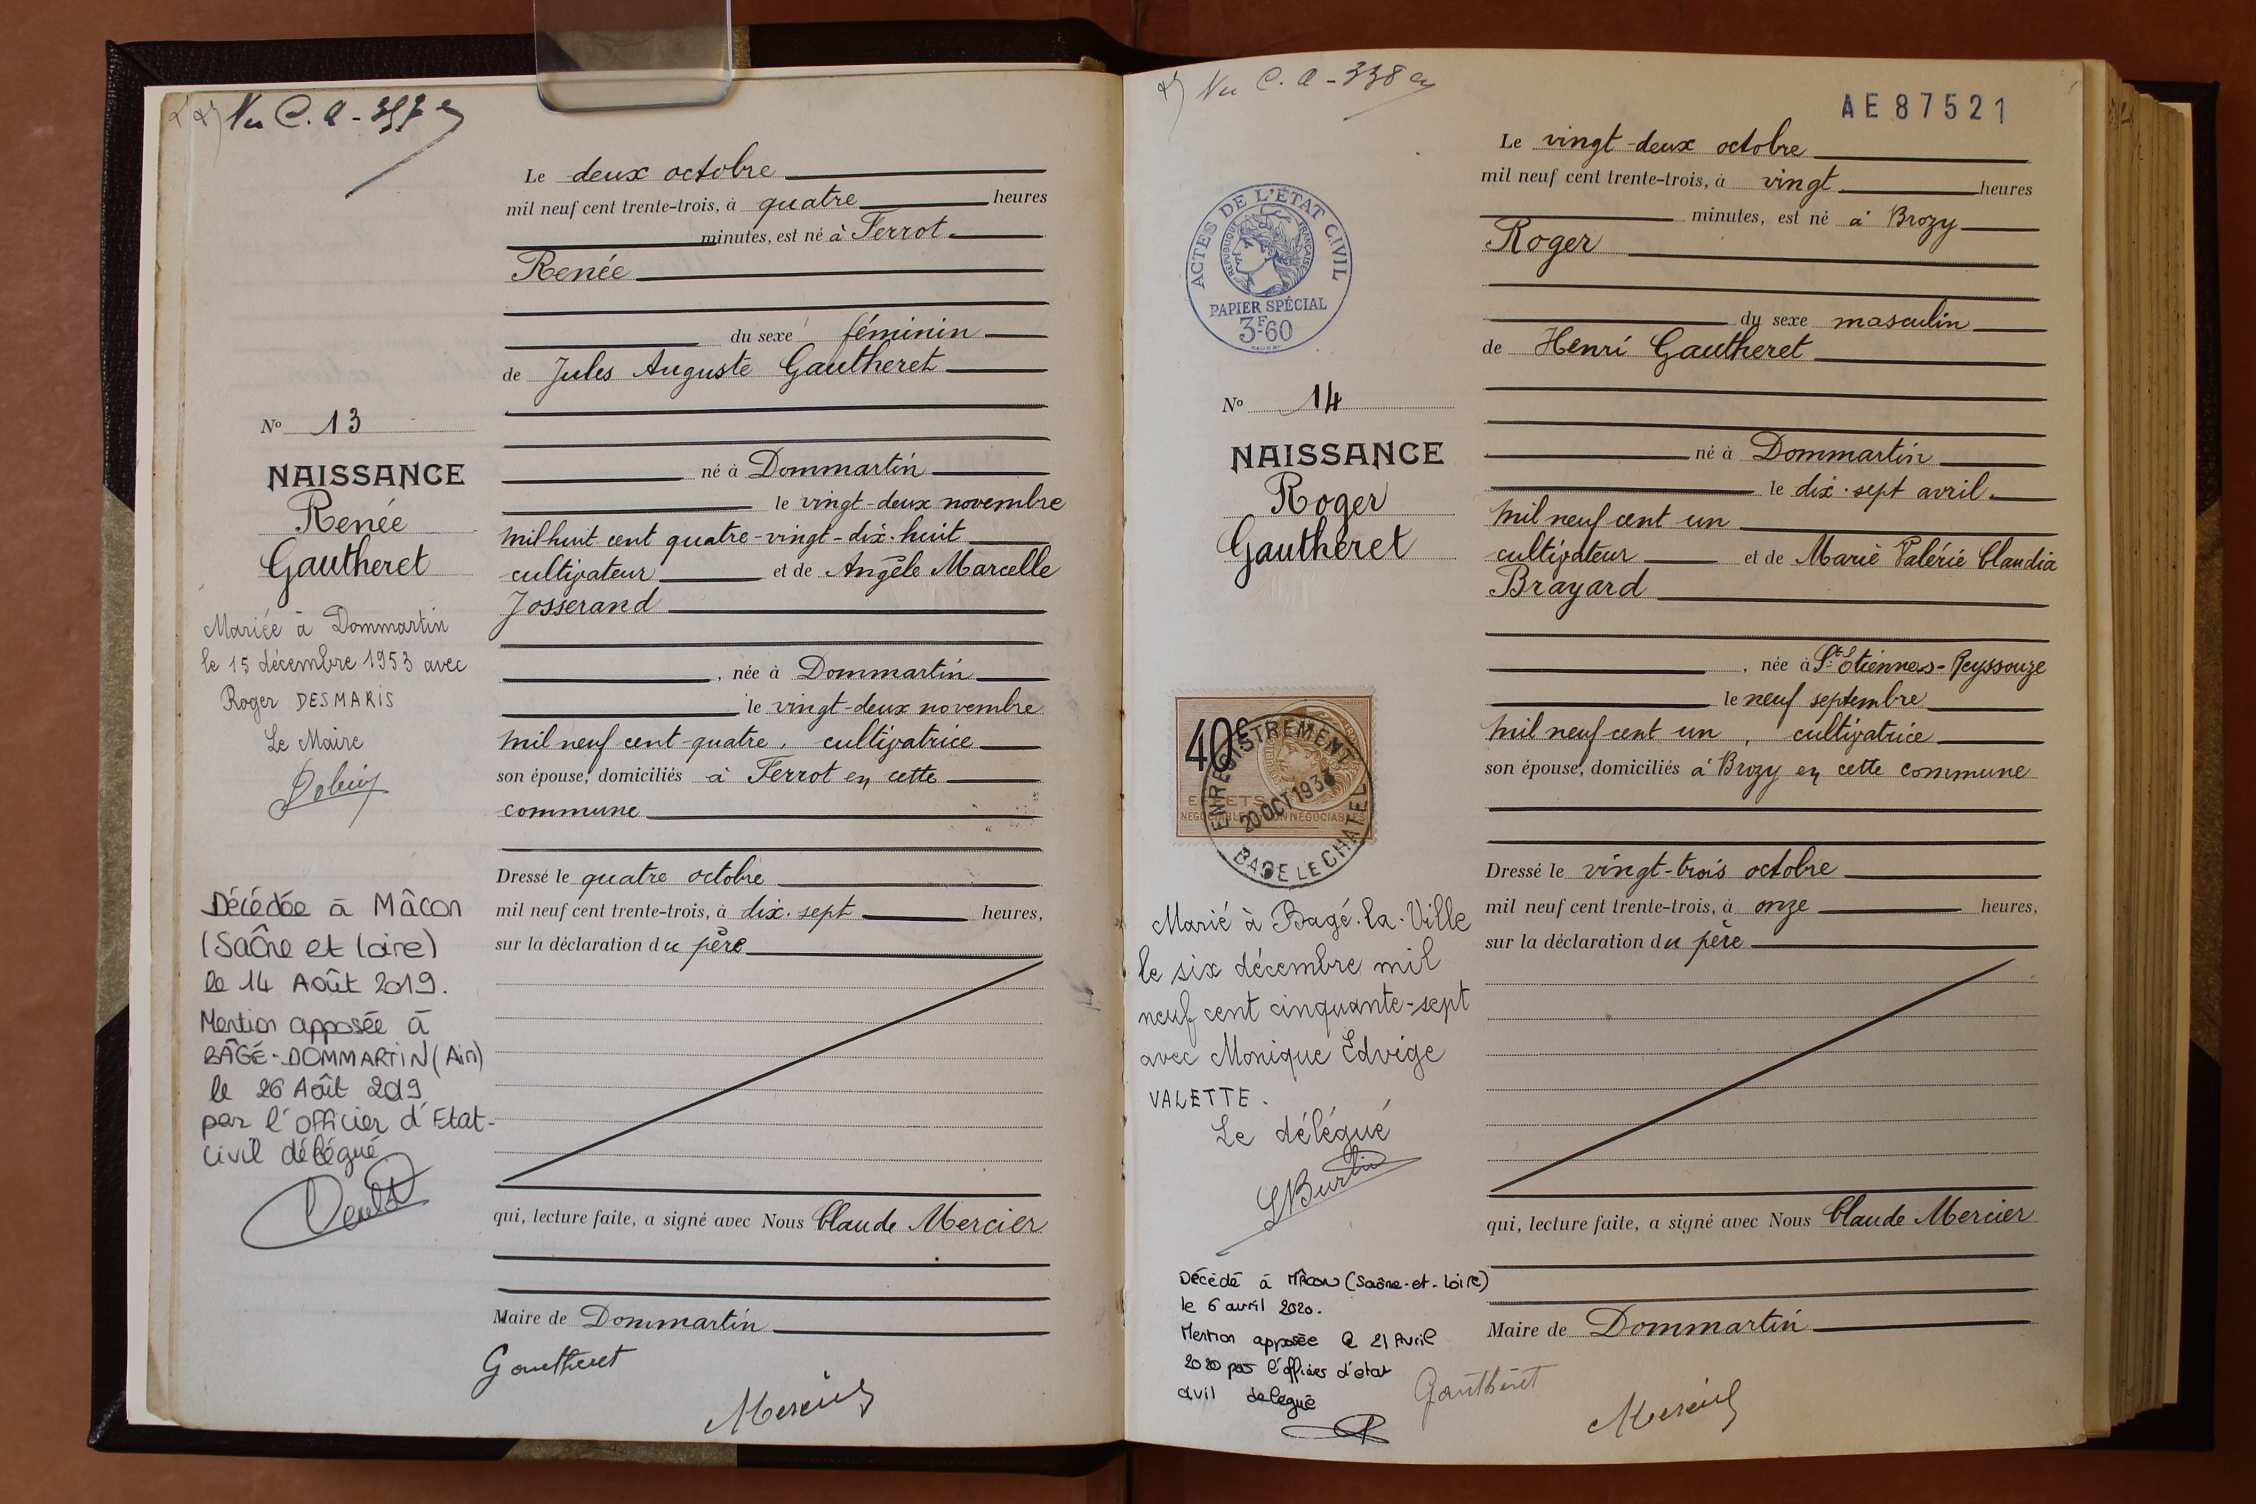 Vu C. A - 337 e
Le deux octobre
mil neuf cent trente-trois, à quatre heures
minutes, est né à Ferrot
Renée
du sexe féminin
de Jules Auguste Gautheret
né à Dommartin
le vingt-deux novembre
mil huit cent quatre-vingt-dix-huit
cultivateur et de Angèle Marcelle
Josserand
, née à Dommartin
le vingt-deux novembre
mil neuf cent-quatre, cultivatrice
son épouse, domiciliés à Ferrot en cette
commune
Dressé le quatre octobre
mil neuf cent trente-trois, à dix-sept heures,
sur la déclaration du père
qui, lecture faite, a signé avec Nous Claude Mercier
Maire de Dommartin
Gautheret
Mercier
No 13
NAISSANCE
Renée
Gautheret
Mariée à Dommartin
le 15 décembre 1953 avec
Roger DESMARIS
Le Maire
Décédée à Mâcon
(Saône et Loire)
le 14 Août 2019.
Mention apposée à
BÂGÉ-DOMMARTIN (Ain)
le 26 Août 2019
par l'officier d'Etat-
civil délégué
Vu C. A - 338 e
AE87521
Le vingt-deux octobre
mil neuf cent trente-trois, à vingt heures
minutes, est né à Brozy
Roger
du sexe masculin
de Henri Gautheret
né à Dommartin
le dix-sept avril
mil neuf cent un
cultivateur et de Marie Valérie Claudia
Brayard
, née à St Etienne s-Reyssouze
le neuf septembre
mil neuf cent un, cultivatrice
son épouse, domiciliés à Brozy en cette commune
Dressé le vingt-trois octobre
mil neuf cent trente-trois, à onze heures,
sur la déclaration du père
qui, lecture faite, a signé avec Nous Claude Mercier
Maire de Dommartin
Gautheret
Mercier
ACTES DE L'ÉTAT CIVIL
RÉPUBLIQUE FRANÇAISE
PAPIER SPÉCIAL
3F60
No 14
NAISSANCE
Roger
Gautheret
40c
EFFETS
NÉGOCIABLES OU NON NÉGOCIABLES
ENREGISTREMENT
20 OCT 1934
BAGE LE CHATEL
Marié à Bagé-la-Ville
le six décembre mil
neuf cent cinquante-sept
avec Monique Edvige
VALETTE.
Le délégué
Décédé à Mâcon (Saône-et-Loire)
le 6 avril 2020.
Mention apposée le 21 Avril
2020 par l'officier d'état
civil délégué